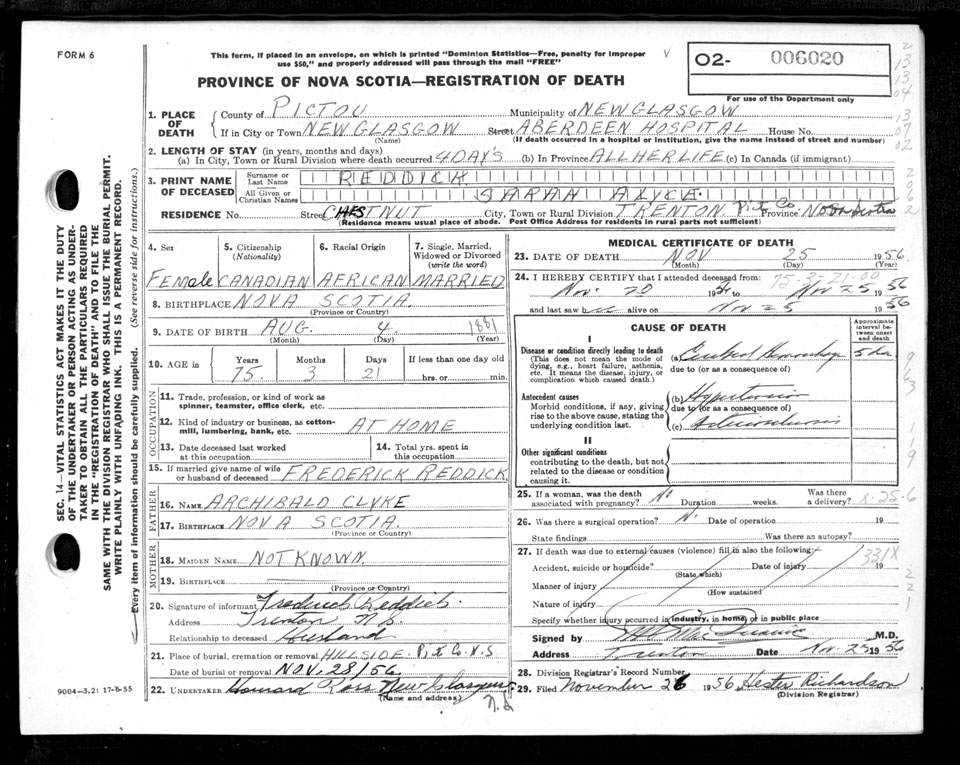 FORM 6
This form, if placed in an envelope, on which is printed "Dominion Statistics—Free, penalty for improper
use $50," and properly addressed will pass through the mail "FREE"
02- 006020
For use of the Department only
PROVINCE OF NOVA SCOTIA—REGISTRATION OF DEATH
1. PLACE OF DEATH
County of PICTOU Municipality of NEW GLASGOW
If in City or Town NEW GLASGOW Street ABERDEEN HOSPITAL House No.
(Name) (If death occurred in a hospital or institution, give the name instead of street and number)
2. LENGTH OF STAY (in years, months and days)
(a) In City, Town or Rural Division where death occurred 4 DAY'S (b) In Province ALL HER LIFE (c) In Canada (if immigrant)
3. PRINT NAME OF DECEASED
Surname or Last Name REDDICK
All Given or Christian Names SARAH ALYCE
RESIDENCE No. Street CHESTNUT City, Town or Rural Division TRENTON Pi Co Province Nova Scotia
(Residence means usual place of abode. Post Office Address for residents in rural parts not sufficient)
4. Sex 5. Citizenship (Nationality) 6. Racial Origin 7. Single, Married, Widowed or Divorced (write the word)
Female CANADIAN AFRICAN MARRIED
8. BIRTHPLACE NOVA SCOTIA
(Province or Country)
9. DATE OF BIRTH AUG. 4. 1881
(Month) (Day) (Year)
10. AGE in Years Months Days If less than one day old
75. 3 21 hrs. or min.
OCCUPATION
11. Trade, profession, or kind of work as
spinner, teamster, office clerk, etc.
12. Kind of industry or business, as cotton-
mill, lumbering, bank, etc. AT HOME
13. Date deceased last worked at this occupation
14. Total yrs. spent in this occupation
15. If married give name of wife
or husband of deceased FREDERICK REDDICK
FATHER
16. NAME ARCHIBALD CLYKE
17. BIRTHPLACE NOVA SCOTIA.
(Province or Country)
MOTHER
18. MAIDEN NAME NOT KNOWN
19. BIRTHPLACE
(Province or Country)
20. Signature of informant Frederick Reddick
Address Trenton N.S.
Relationship to deceased Husband
21. Place of burial, cremation or removal HILLSIDE. Pi Co. N.S
Date of burial or removal NOV. 28/56
22. UNDERTAKER Howard Ross New Glasgow
(Name and address) N.S
MEDICAL CERTIFICATE OF DEATH
23. DATE OF DEATH NOV 25 1956
(Month) (Day) (Year)
24. I HEREBY CERTIFY that I attended deceased from:
Nov. 20 1956 Nov 25 1956
and last saw h alive on Nov 25 1956
CAUSE OF DEATH
Approximate interval between onset and death
I
Disease or condition directly leading to death
(This does not mean the mode of
dying, e.g., heart failure, asthenia,
etc. It means the disease, injury, or
complication which caused death.
(a) Cerebral Hemorrhage 5 da
due to (or as a consequence of)
Antecedent causes
Morbid conditions, if any, giving
rise to the above cause, stating the
underlying condition last.
(b) Hypertension
due to (or as a consequence of)
(c) Arteriosclerosis
II
Other significant conditions
contributing to the death, but not
related to the disease or condition
causing it.
25. If a woman, was the death
associated with pregnancy? No Duration weeks. Was there a delivery?
X-25-6
26. Was there a surgical operation? N. Date of operation 19
State findings Was there an autopsy?
27. If death was due to external causes (violence) fill in also the following:
Accident, suicide or homicide? Date of injury 19
(State which)
331X
Manner of injury
(How sustained
Nature of injury
Specify whether injury occurred in industry, in home, or in public place
Signed by M.D.
Address Trenton Date Nov. 25 1956
28. Division Registrar's Record Number
29. Filed November 26 1956 Hester Richardson
(Division Registrar)
SEC. 14—VITAL STATISTICS ACT MAKES IT THE DUTY
OF THE UNDERTAKER OR PERSON ACTING AS UNDER-
TAKER TO OBTAIN ALL THE PARTICULARS REQUIRED
IN THE "REGISTRATION OF DEATH" AND TO FILE THE
SAME WITH THE DIVISION REGISTRAR WHO SHALL ISSUE THE BURIAL PERMIT.
WRITE PLAINLY WITH UNFADING INK. THIS IS A PERMANENT RECORD.
Every item of information should be carefully supplied. (See reverse side for instructions.)
9004—3.2: 17-8-55